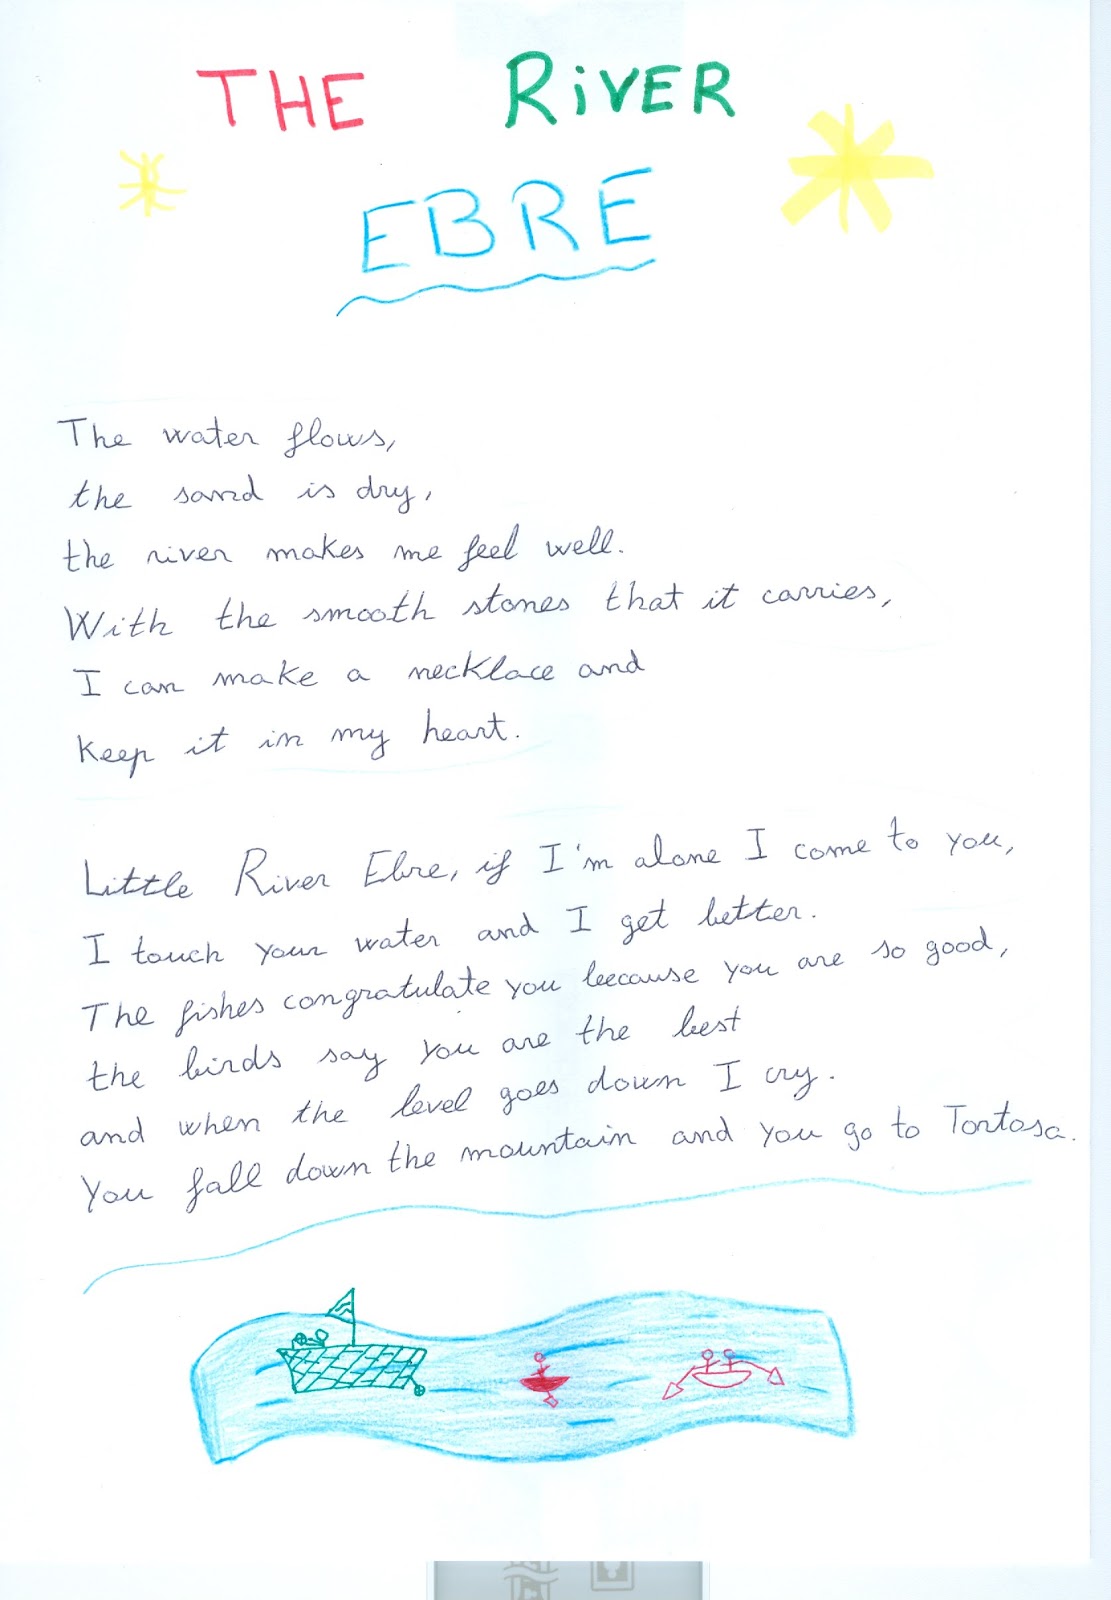 THE RiVER
EBRE
The water flows,
the sand is dry,
the river makes me feel well.
With the smooth stones that it carries,
I can make a necklace and
keep it in my heart.
Little River Ebre, if I'm alone I come to you,
I touch your water and I get better.
The fishes congratulate you because you are so good,
the birds say you are the best
and when the level goes down I cry.
You fall down the mountain and you go to Tortosa.